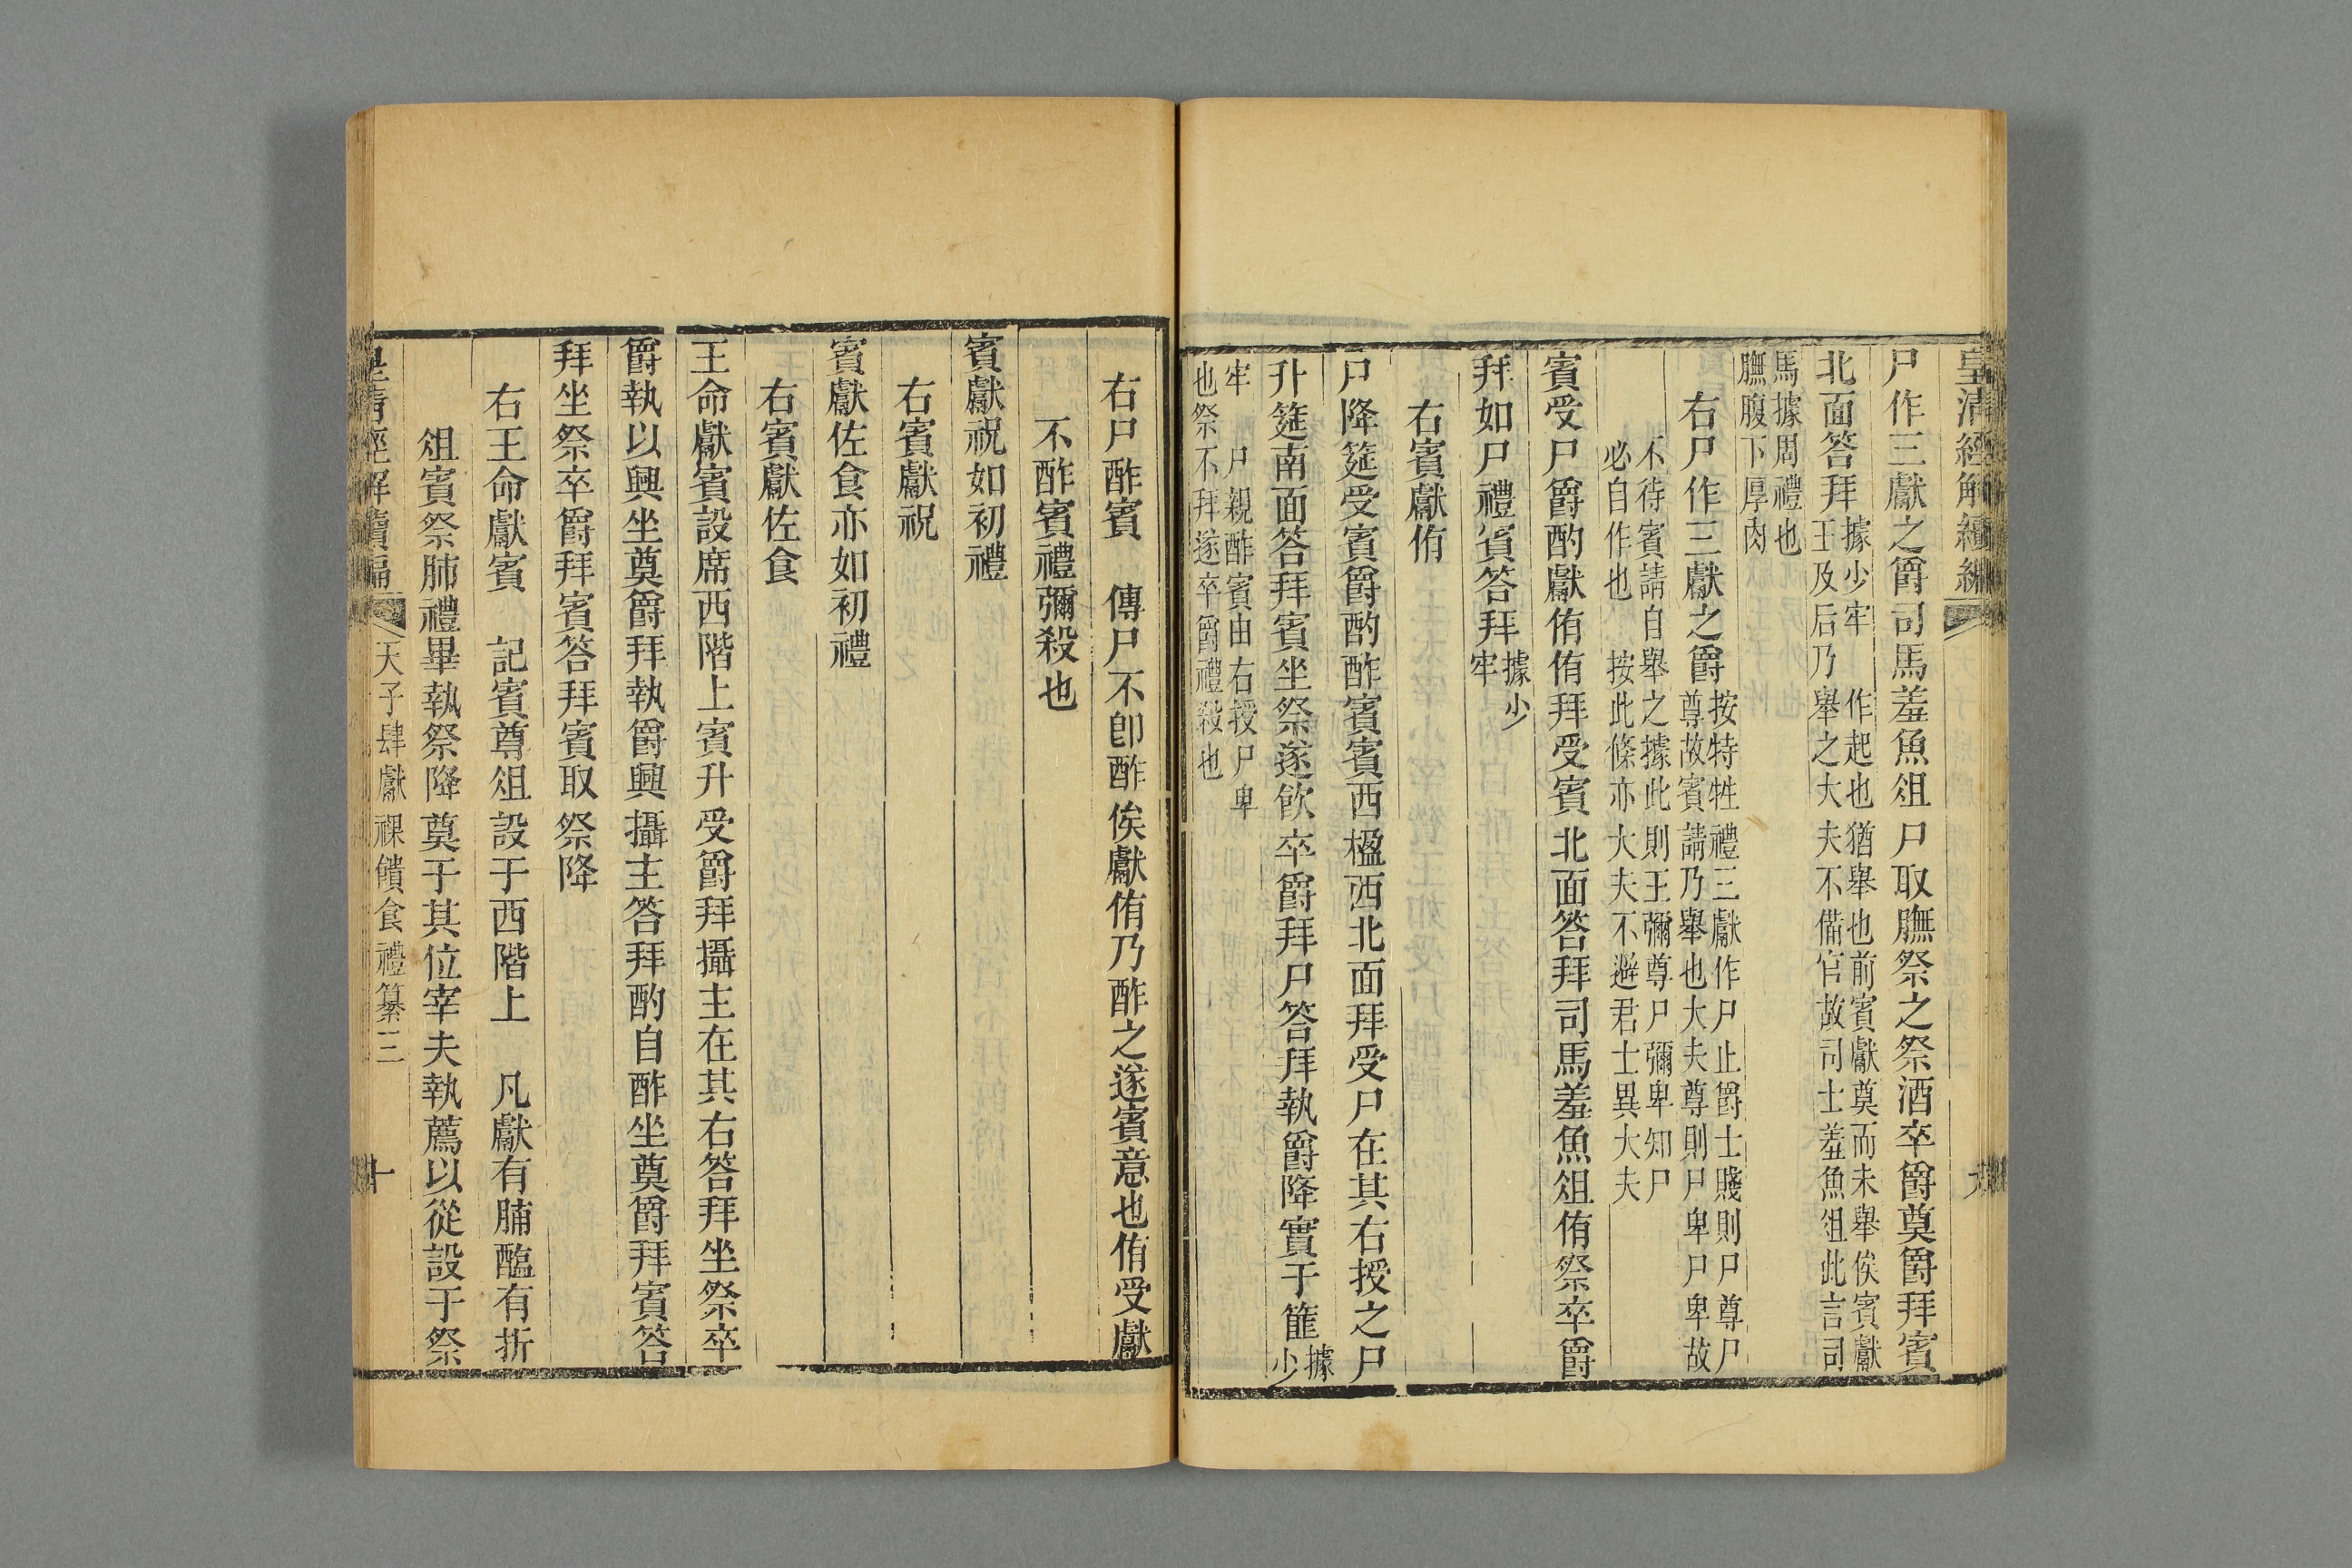 皇清經解續編
尸作三獻之爵司馬羞魚俎尸取膴祭之祭酒卒爵奠爵拜賓
北面答拜據少牢 作起也猶舉也前賓獻奠而未舉俟賓獻
王及后乃舉之大夫不備官故司士羞魚俎此言司
馬據周禮也
膴腹下厚肉
右尸作三獻之爵按特牲禮三獻作尸止爵士賤則尸尊尸
尊故賓請乃舉也大夫尊則尸卑尸卑故
不待賓請自舉之據此則王彌尊尸彌卑知尸
必自作也 按此條亦大夫不避君士異大夫
賓受尸爵酌獻侑侑拜受賓北面答拜司馬羞魚俎侑祭卒爵
拜如尸禮賓答拜據少
牢
右賓獻侑
尸降筵受賓爵酌酢賓賓西楹西北面拜受尸在其右授之尸
升筵南面答拜賓坐祭遂飮卒爵拜尸答拜執爵降實于篚據
少
牢 尸親酢賓由右授尸卑
也祭不拜遂卒爵禮殺也
右尸酢賓 傳尸不卽酢俟獻侑乃酢之遂賓意也侑受獻
不酢賓禮彌殺也
賓獻祝如初禮
右賓獻祝
賓獻佐食亦如初禮
右賓獻佐食
王命獻賓設席西階上賓升受爵拜攝主在其右答拜坐祭卒
爵執以興坐奠爵拜執爵興攝主答拜酌自酢坐奠爵拜賓答
拜坐祭卒爵拜賓答拜賓取祭降
右王命獻賓 記賓尊俎設于西階上 凡獻有脯醢有折
俎賓祭肺禮畢執祭降奠于其位宰夫執薦以從設于祭
皇清經解續編 天子肆獻祼饋食禮纂三 十